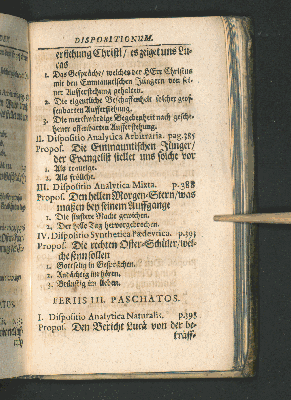 DISPOSITIONUM.
erstehung Christi / es zeiget uns Lu-
cas
1. Das Gespräche / welches der HErr Christus
mit den Emmauntischen Jüngern von sei-
ner Aufferstehung gehalten.
2. Die eigentliche Beschaffenheit solcher geof-
fenbarten Aufferstehung.
3. Die merckwürdige Begebenheit nach gesche-
hener offenbarten Aufferstehung.
II. Dispositio Analytica Arbitraria. pag. 385
Propos. Die Emmauntischen Jünger /
der Evangelist stellet uns solche vor
1. Als traurige.
2. Als fröliche.
III. Dispositio Analytica Mixta. p. 388
Propos. Den hellen Morgen-Stern / was
massen bey seinem Auffgange
1. Die finstere Nacht gewichen.
2. Der helle Tag hervorgebrochen.
IV. Dispositio Synthetica Porismatica. p. 393
Propos. Die rechten Oster-Schüler / wel-
che sinn sollen
1. Gottselig in Gesprächen.
2. Andächtig im hören.
3. Brünstig im lieben.
FERIIS III. PASCHATOS.
I. Dispositio Analytica Naturalis. p. 398
Propos. Den Bericht Lucä von der be-
kräff-